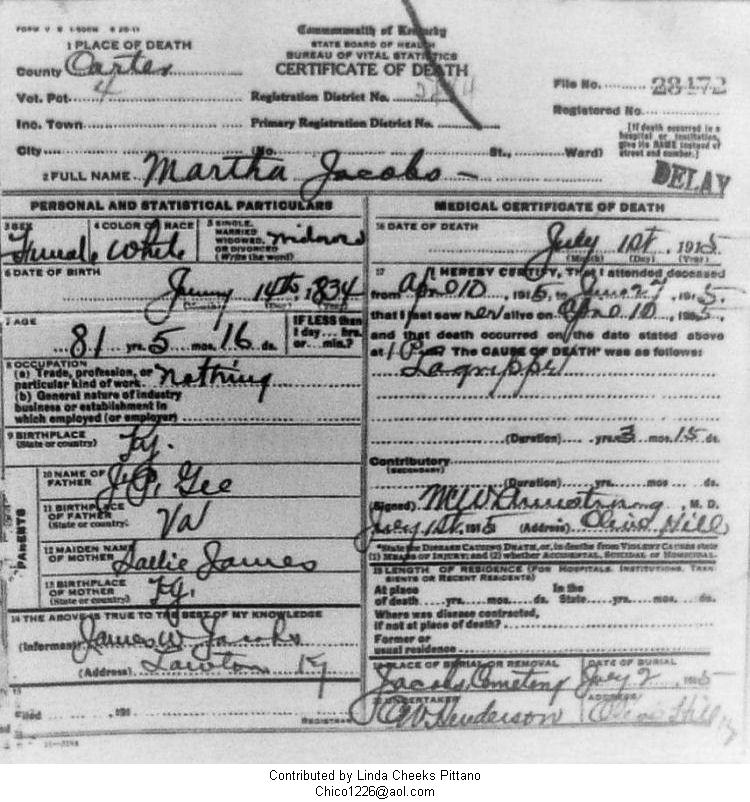 FORM V. S. 1-500M 8-20-11
Commonwealth of Kentucky
STATE BOARD OF HEALTH
BUREAU OF VITAL STATISTICS
CERTIFICATE OF DEATH
1 PLACE OF DEATH
County Carter
Vot. Pct. 4
Inc. Town
City (No. St., Ward)
Registration District No.
Primary Registration District No.
File No. 28472
Registered No.
[If death occurred in a hospital or institution, give its NAME instead of street and number.]
2 FULL NAME Martha Jacobs
DELAY
PERSONAL AND STATISTICAL PARTICULARS
3 SEX Female
4 COLOR RACE White
5 SINGLE, MARRIED WIDOWED, OR DIVORCED (Write the word) Widowed
6 DATE OF BIRTH
14th, 1834
(Month) (Day) (Year)
7 AGE
81 yrs. 5 mos. 16 ds.
IF LESS than 1 day... hrs. or... min.?
8 OCCUPATION
(a) Trade, profession, or particular kind of work Nothing
(b) General nature of industry
business or establishment in
which employed (or employer)
9 BIRTHPLACE
(State or country) Ky.
PARENTS
10 NAME OF FATHER J.P. Gee
11 BIRTHPLACE OF FATHER (State or country) Va
12 MAIDEN NAME OF MOTHER Sallie James
13 BIRTHPLACE OF MOTHER (State or country) Ky.
14 THE ABOVE IS TRUE TO THE BEST OF MY KNOWLEDGE
(Informant) James W. Jacobs
(Address) Lawton Ky
15
Filed 191
REGISTRAR
MEDICAL CERTIFICATE OF DEATH
16 DATE OF DEATH
July 1st, 1915
(Month) (Day) (Year)
17 I HEREBY CERTIFY, That I attended deceased
from April 10, 1915, to June 27, 1915.
that I last saw her alive on April 10, 1915,
and that death occurred on the date stated above
at 1 P.m. The CAUSE OF DEATH* was as follows:
Lagrippe
(Duration) yrs. 3 mos. 15 ds.
Contributory
(SECONDARY)
(Duration) yrs. mos. ds.
(Signed) Armstrong, M. D.
July 1st, 1915 (Address) Olive Hill
*State the DISEASE CAUSING DEATH, or, in deaths from VIOLENT CAUSES state
(1) MEANS OF INJURY; and (2) whether ACCIDENTAL, SUICIDAL or HOMICIDAL.
18 LENGTH OF RESIDENCE (FOR HOSPITALS, INSTITUTIONS, TRANSIENTS OR RECENT RESIDENTS)
At place of death yrs. mos. ds. In the State yrs. mos. ds.
Where was disease contracted,
if not at place of death?
Former or
usual residence
19 PLACE OF BURIAL OR REMOVAL
Jacobs Cemetery
DATE OF BURIAL
July 2, 1915
20 UNDERTAKER
Henderson
ADDRESS
Olive Hill Ky
Contributed by Linda Cheeks Pittano
Chico1226@aol.com